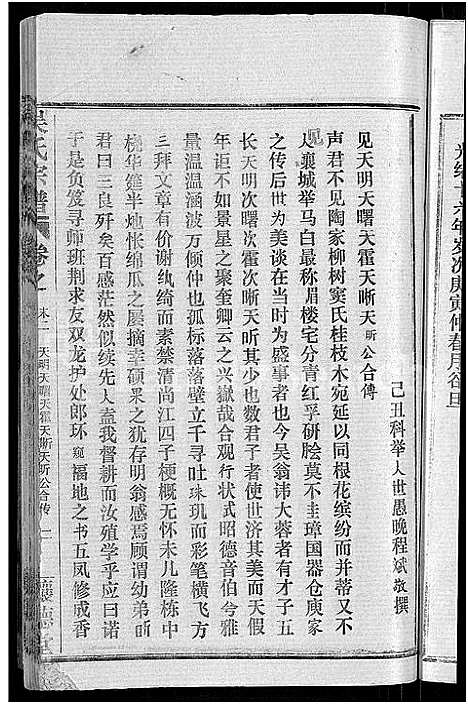 光绪十六年岁次庚寅仲春月谷旦
己丑科举人世愚晚程斌敬撰
见天明天曙天霍天晰天昕公合传
声君不见陶家柳树窦氏桂枝木宛延以同根花缤纷而并蒂又不
见
人襄城举马白最称眉楼宅分青红孚研脍莫不圭璋国器仓庾家
之传后世为美谈在当时为盛事者也今吴翁讳大蓉者有才子五
长天明次曙次霍次晰天听其少也数君子者使世济其美而天假
年讵不如景星之聚奎卿云之兴岳哉合观行状式昭德音伯兮雅
量温温涵波万倾仲也孤标落落壁立千寻吐珠玑而彩笔横飞方
三拜文章有价谢纨绮而素禁清尚江四子梗概无怀未几隆栋中
桡华筵半地怅绵瓜之屡摘幸硕果之犹存明翁感焉顾谓幼弟昕
君曰三良歼矣百感茫然似续先人盍我督耕而汝殖学乎应曰诺
于是负笈寻师班荆求友双龙护处郎环窥福地之书五凤修成香
吴氏宗谱 卷之
末一 天明天曙天霍天晰天昕公合传